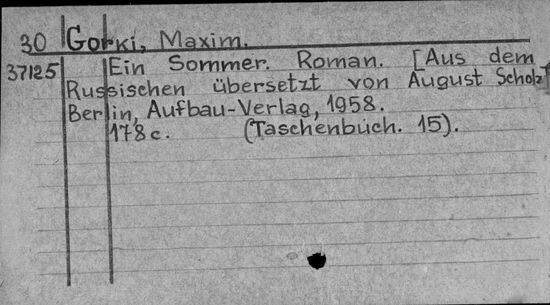 30 Gorki, Maxim.
37125 Ein Sommer. Roman. [Aus dem
Russischen übersetzt von August Scholz]
Berlin, Aufbau-Verlag, 1958.
178 c. (Taschenbuch. 15).